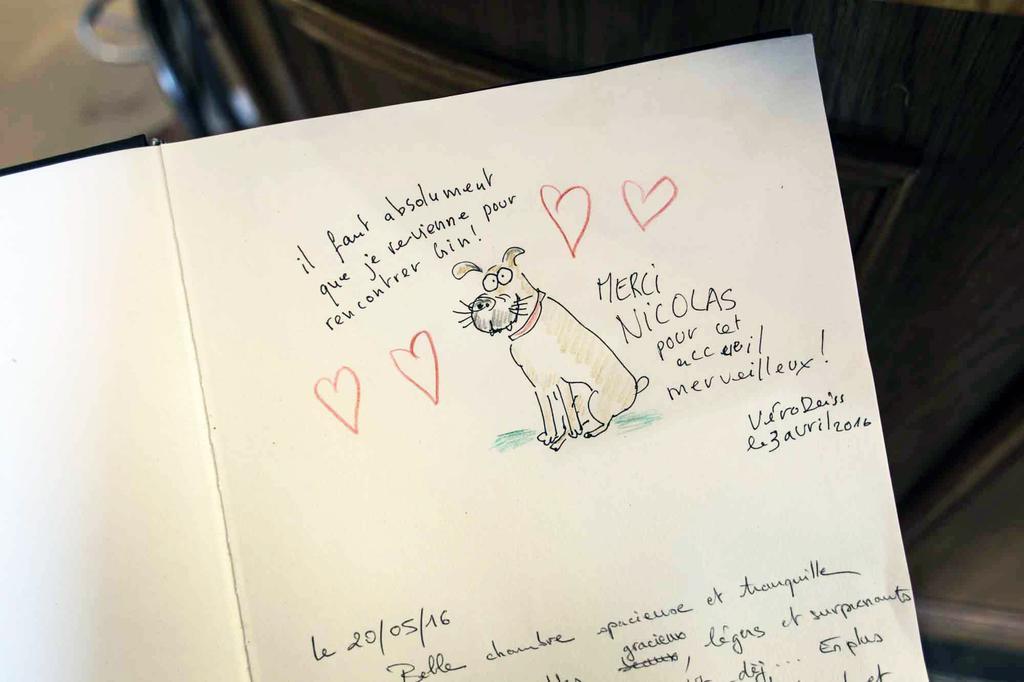 il faut absolument
que je revienne pour
rencontrer Gin!
MERCI
NICOLAS
pour cet
accueil
merveilleux!
Véro Deiss
le 3 avril 2016
le 20/05/16
Belle chambre spacieuse et tranquille
gracieux
, légers et surprenants
déj... En plus
et